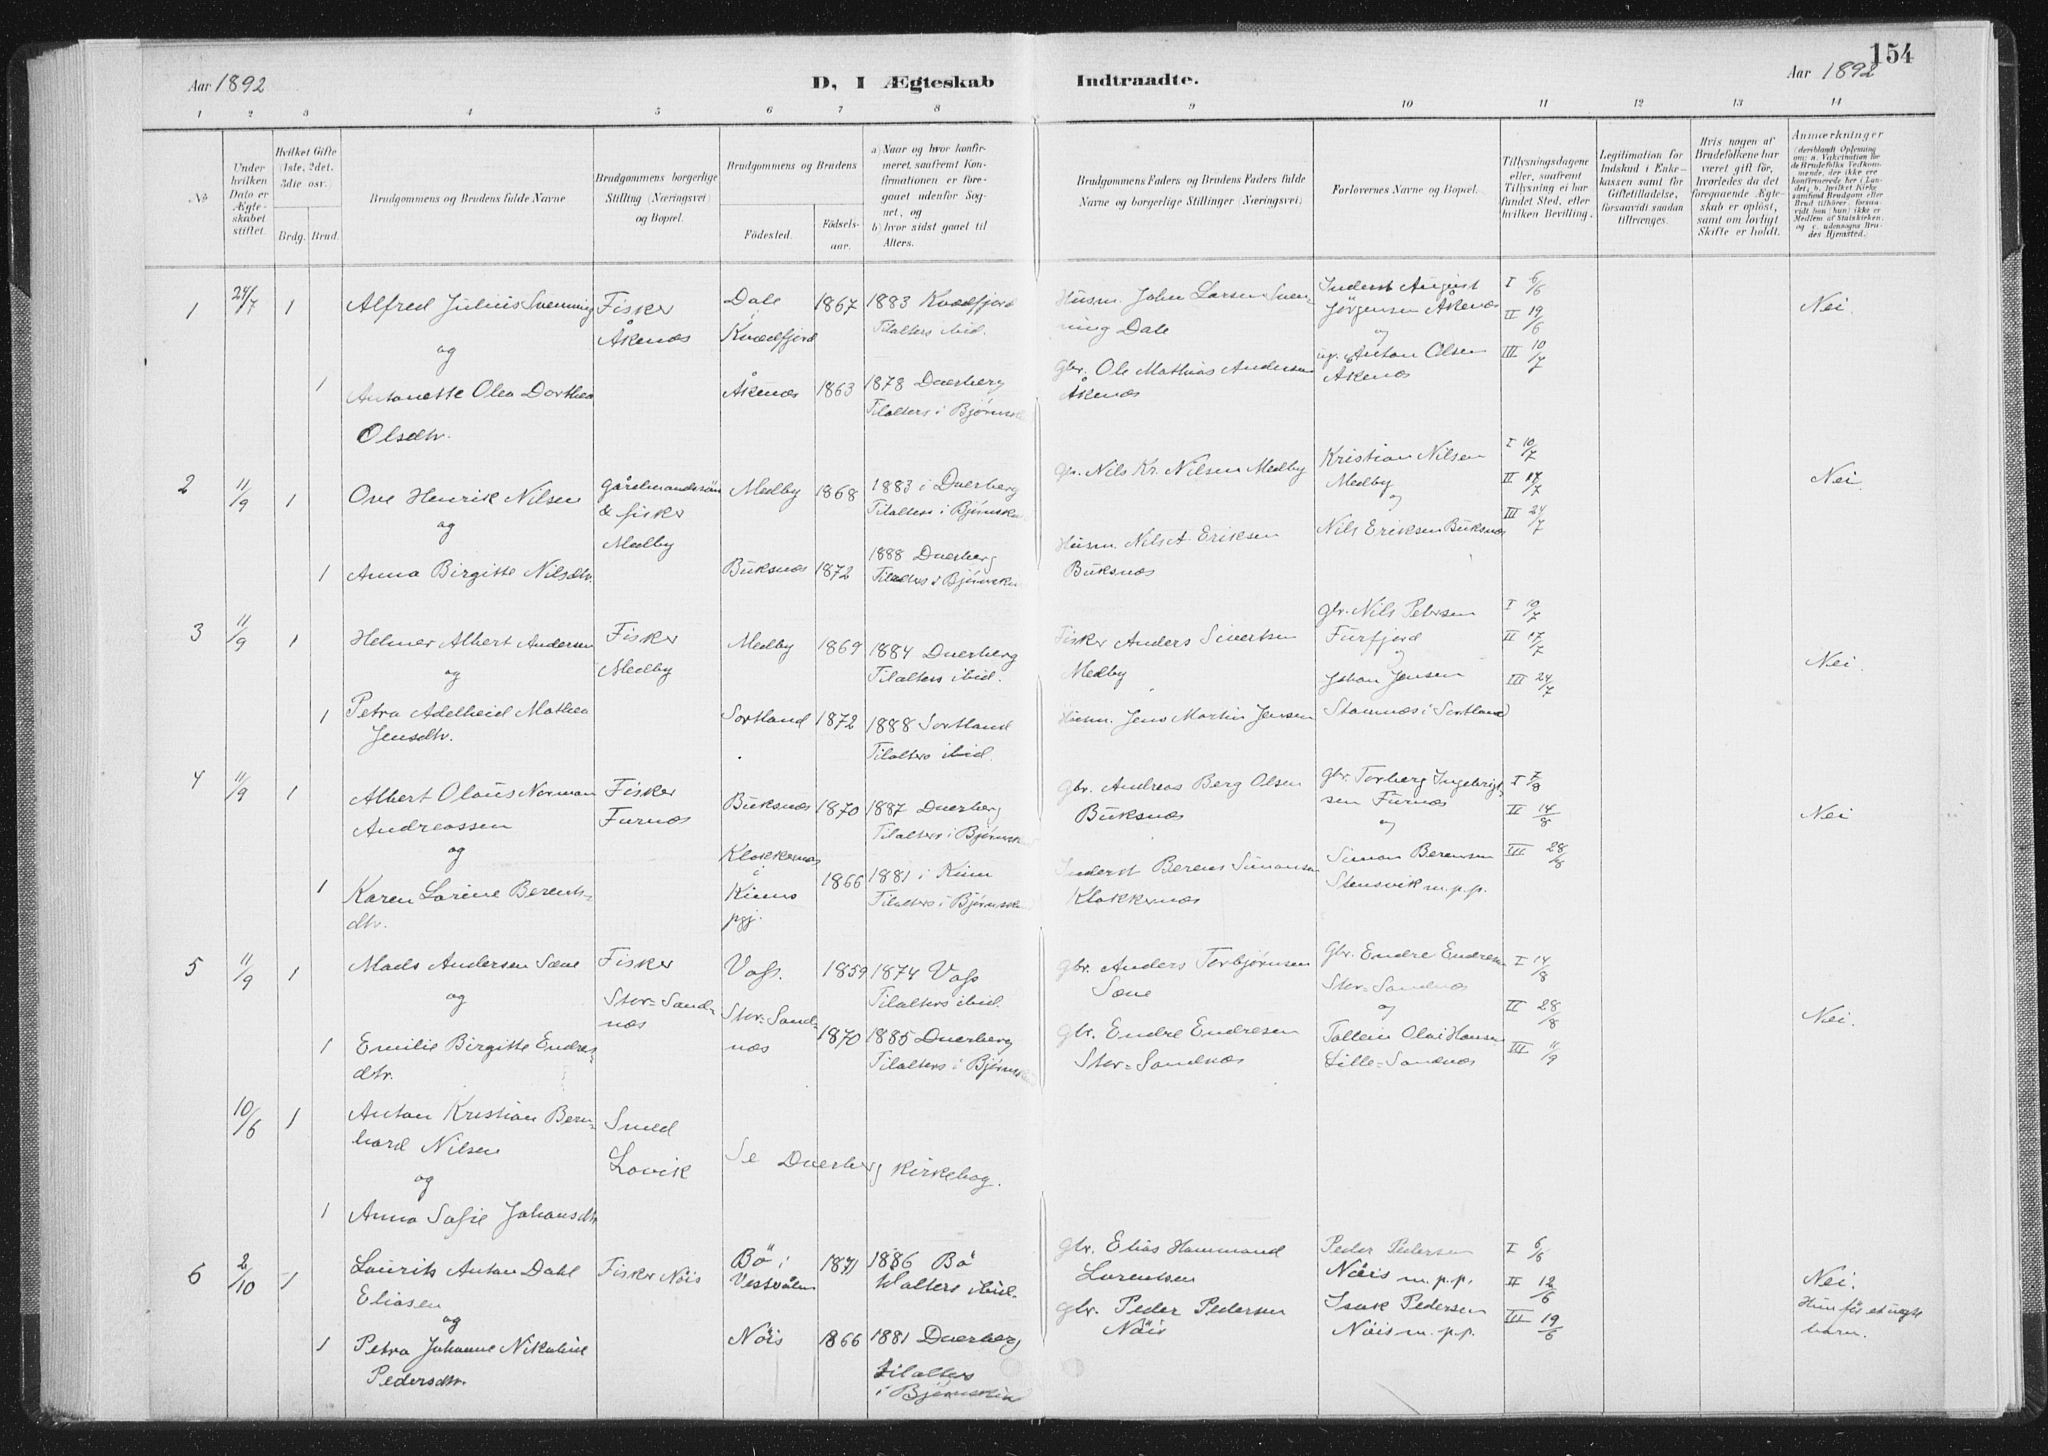 154
Aar 1892
D, I Ægteskab
Indtraadte.
Aar 1892
1 2 3 4 5 6 7 8 9 10 11 12 13 14
No
Under hvilken Dato er Ægteskabet stiftet.
Hvilket Gifte (1ste, 2det, 3die osv.)
Brdg. Brud.
Brudgommens og Brudens fulde Navne
Brudgommens borgerlige Stilling (Næringsvei) og Bopæl.
Brudgommens og Brudens
Fødested.
Fødselsaar.
a) Naar og hvor konfirmeret, saafremt Konfirmationen er foregaaet udenfor Sognet, og
b) hvor sidst gaaet til Alters.
Brudgommens Faders og Brudens Faders fulde Navne og borgerlige Stillinger (Næringsvei)
Forlovernes Navne og Bopæl.
Tillysningsdagene eller, saafremt Tillysning ei har fundet Sted, efter hvilken Bevilling.
Legitimation for Indskud i Enkekassen samt for Giftetilladelse, forsaavidt saadan tiltrænges.
Hvis nogen af Brudefolkene har været gift før, hvorledes da det foregaaende Ægteskab er opløst, samt om lovligt Skifte er holdt.
Anmærkninger
1 24/7 1
Alfred Julius Svenning
og
1 Antonette Olea Dorthea
Olsdtr.
Fisker
Åkenæs
Dale
i
Kvædfjord
Åkenæs
1867
1863
1883 Kvædfjord
Tilalters ibid.
1878 Dverberg
Tilalters i Bjørnsk
Husm. John Larsen Sven-
ning Dale
Gbr. Ole Mathias Andersen
Åkenæs
Inderst August
Jørgensen Åkenæs
og
Anton Olsen
Åkenæs
I 5/6
II 19/6
III 10/7
Nei.
2 11/9 1
Ove Henrik Nilsen
og
1 Anna Birgitte Nilsdtr.
gårdmandssøn
& fisker
Medby
Medby 1868
Buksnæs 1872
1883 i Dverberg
Tilalters i Bjørnsk
1888 Dverberg
Tilalters i Bjørnsk
Gbr. Nils Kr. Nilsen Medby
Husm. Nils A Eriksen
Buksnæs
Kristian Nilsen
Medby
og
Nils Eriksen Buksnæs
I 10/7
II 17/7
III 24/7
Nei.
3 11/9 1
Helmer Albert Andersen
og
1 Petra Adelheid Mathea
Jensdtr.
Fisker
Medby
Medby 1869
Sortland 1872
1884 Dverberg
Tilalters ibid.
1888 Sortland
Tilalters ibid.
Fisker Anders Sivertsen
Medby
Husm. Jens Martin Jensen
gbr. Nils Petersen
Furfjord
og
Johan Jensen
Stamnæs i Sortland
I 10/7
II 17/7
III 24/7
Nei.
4 11/9 1
Albert Olaus Norman
Andreassen
og
1 Karen Lorine Berents-
dtr.
Fisker
Furnæs
Buksnæs 1870
Klokkernæs
i
Kinns
pgj. 1866
1887 Dverberg
Tilalters i Bjørnsk
1881 i Kinn
Tilalters i Bjørnsk
gbr. Andreas Berg Olsen
Buksnæs
Inderst Berens Simonsen
Klokkernæs
gbr. Torberg Ingebrigt-
sen Furnæs
og
Simon Berensen
Stensvik m.p.p.
I 7/8
II 14/8
III 28/8
Nei
5 11/9 1
Mads Andersen Sæve
og
1 Emilie Birgitte Endres-
dtr.
Fisker
Stor-Sand-
næs
Voss. 1859
Stor-Sand-
næs 1870
1874 Voss
Tilalters ibid.
1885 Dverberg
Tilalters i Bjørnsk
Gbr. Anders Torbjørnsen
Sæve
Gbr. Endre Endresen
Stor-Sandnæs
Gbr. Endre Endresen
Stor-Sandnæs
og
Tollein Olai Hansen
Lille-Sandnæs
I 14/8
II 28/8
III 11/9
Nei.
10/6 1
Anton Kristian Bern-
hard Nilsen
og
1 Anna Sofie Johansdtr.
Smed
Lovik
Se Dverberg kirkebog.
6 2/10 1
Laurits Anton Dahl
Eliasen
og
1 Petra Johanne Nikoline
Pedersdtr.
Fisker Nöis
Bö i
Vestrålen 1871
Nöis 1866
1886 Bö
tilalters ibid.
1881 Dverberg
tilalters
i Bjørnskin
Gbr. Elias Hammond
Lorentsen
Gbr. Peder Pedersen
Nöis
Peder Pedersen
Nöis m.p.p.
Isak Pedersen
Nöis m.p.p.
I 5/6
II 12/6
III 19/6
Nei.
Hun før et uægte
barn.